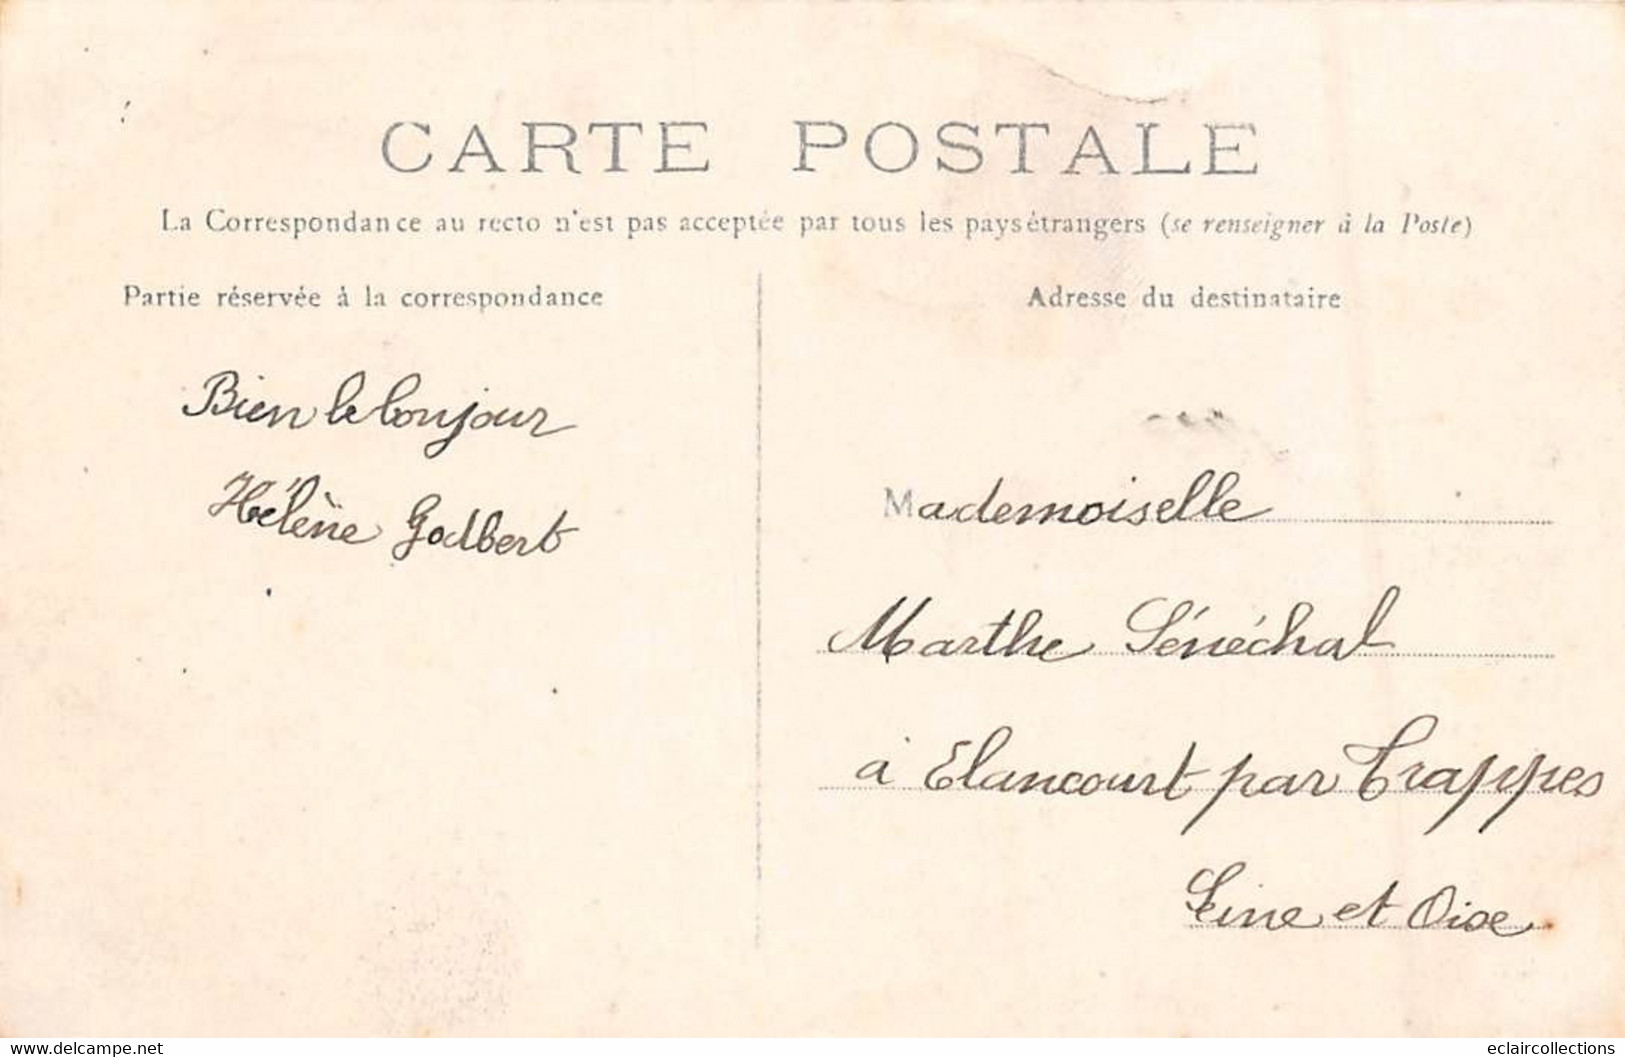 CARTE POSTALE
La Correspondance au recto n'est pas acceptée par tous les pays étrangers (se renseigner à la Poste)
Partie réservée à la correspondance
Adresse du destinataire
Bien le bonjour
Hélène Godbert
Mademoiselle
Marthe Sénéchal
à Elancourt par Trappes
Seine et Oise
www.delcampe.net
eclaircollections